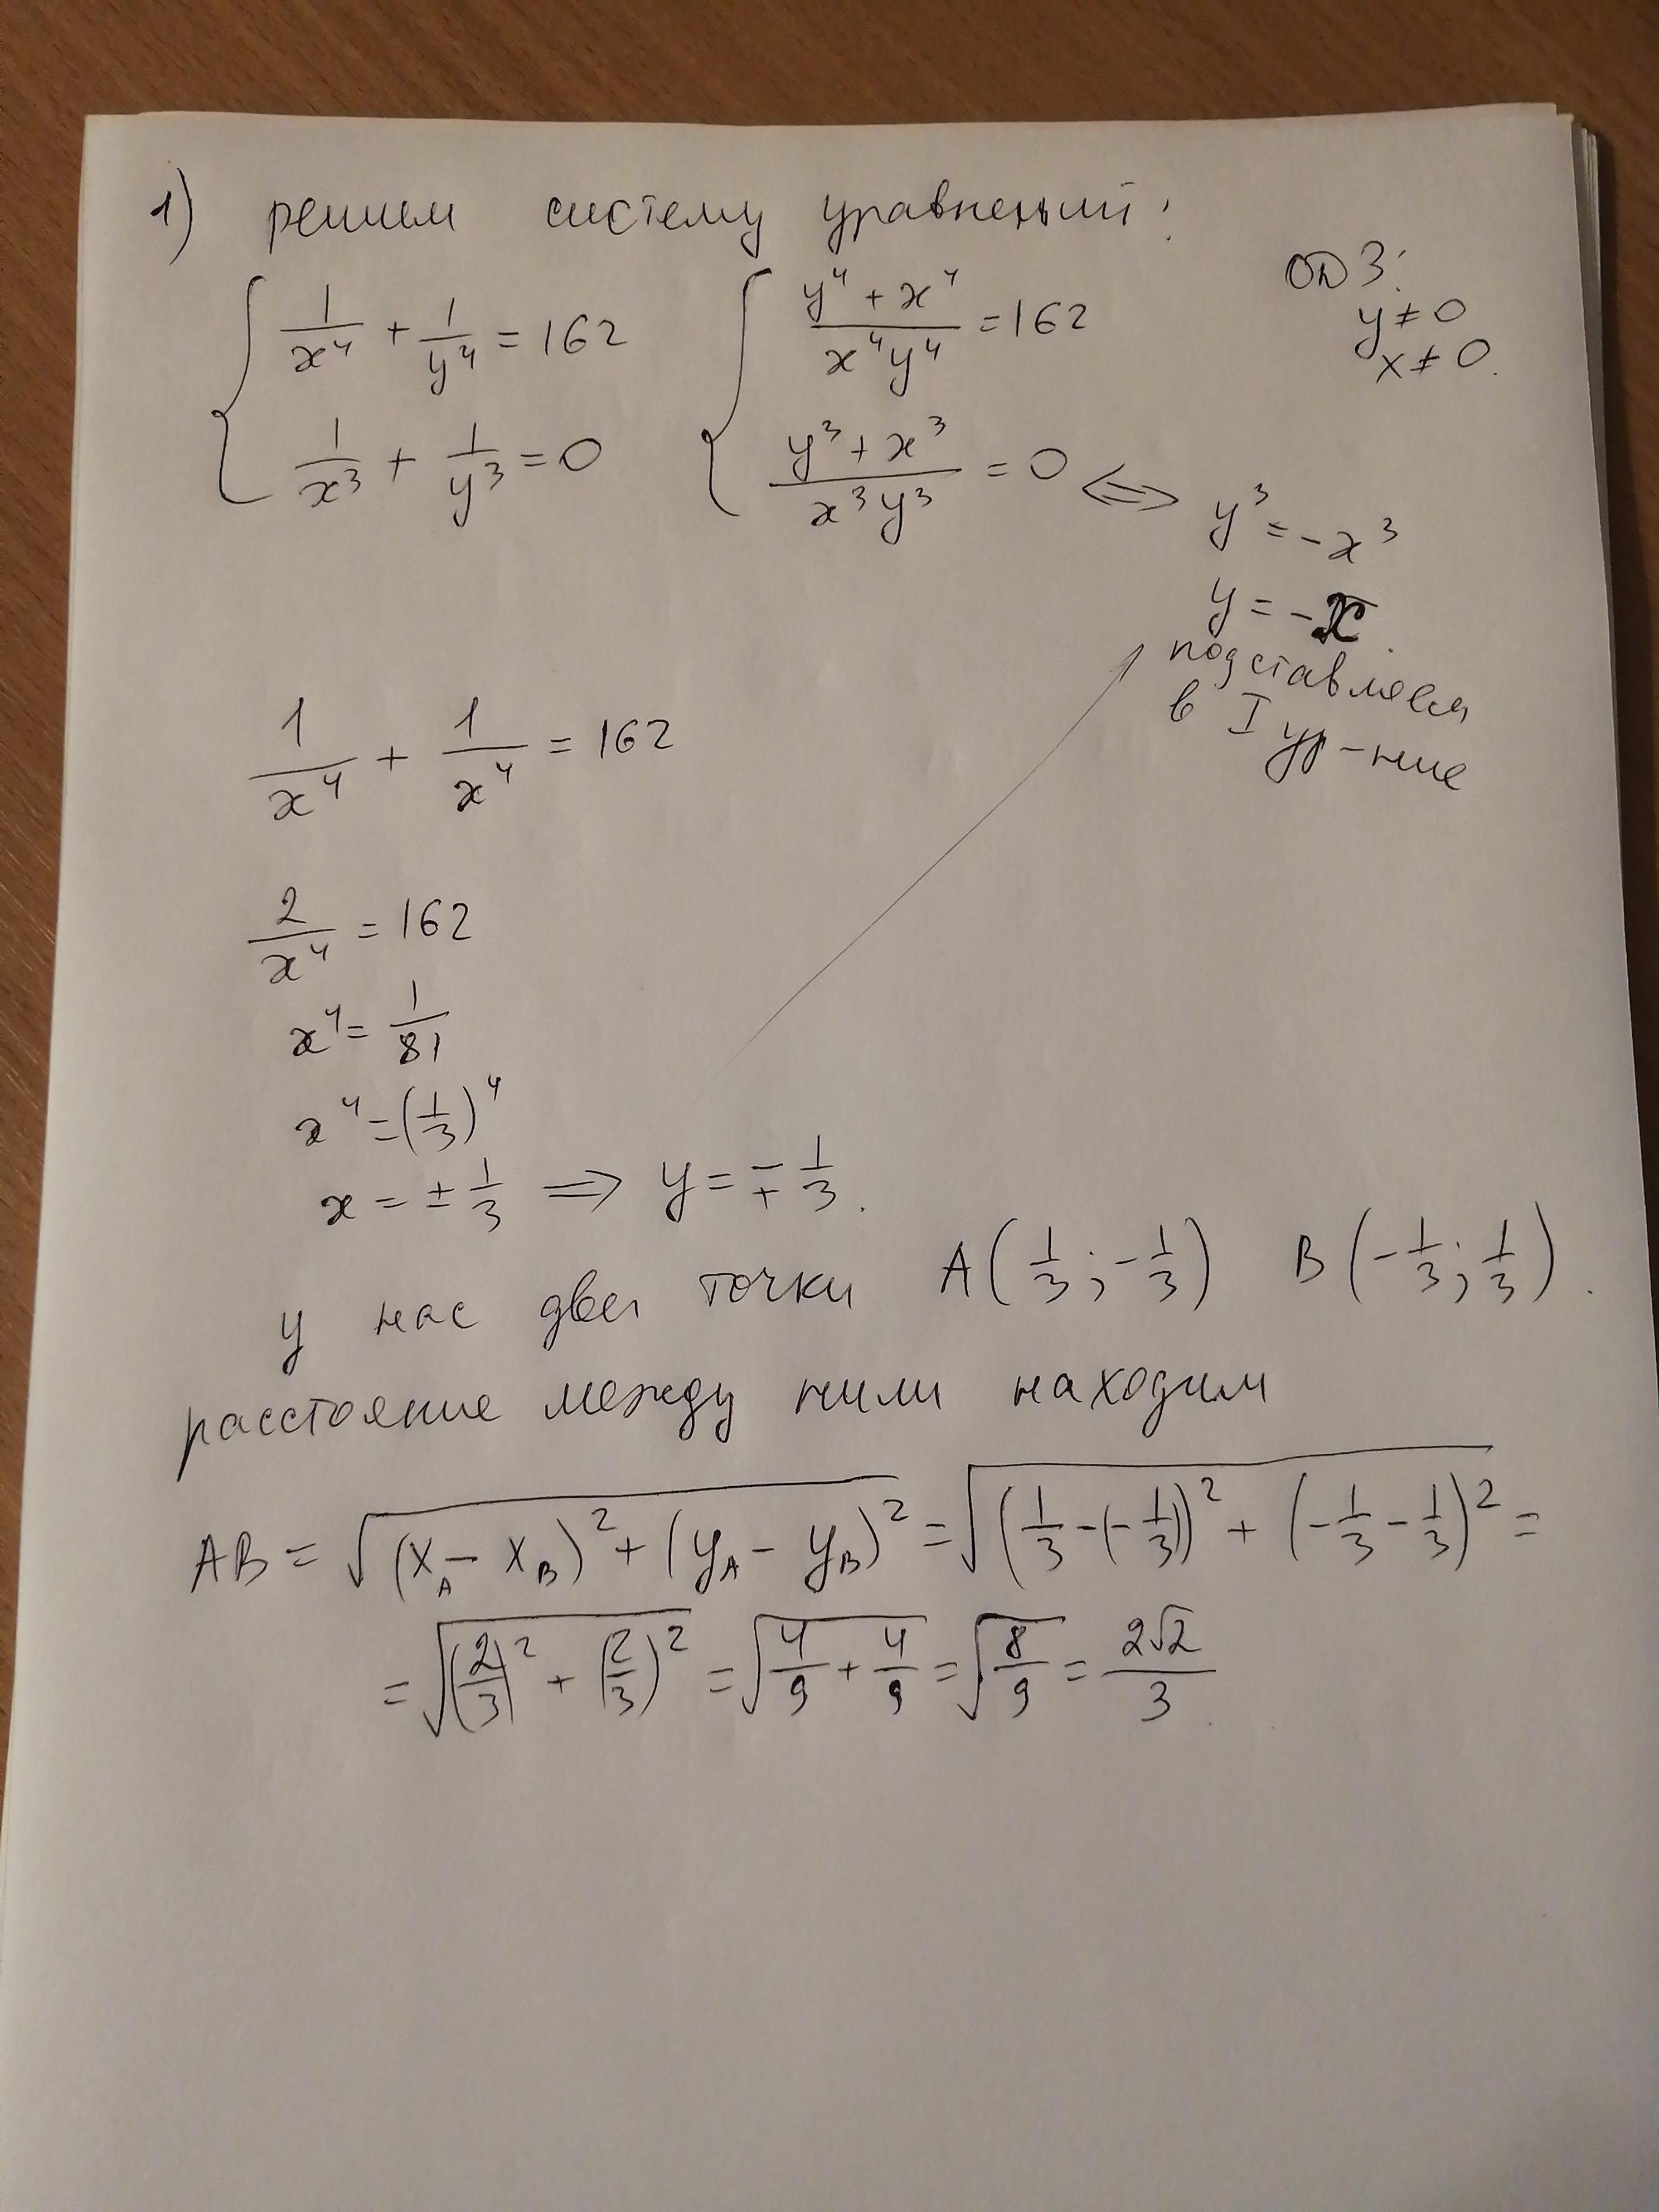 1) решим систему уравнений:
{ 1/x⁴ + 1/y⁴ = 162 { (y⁴ + x⁴)/(x⁴y⁴) = 162 ОДЗ:
y ≠ 0
x ≠ 0.
1/x³ + 1/y³ = 0 (y³ + x³)/(x³y³) = 0 <=> y³ = -x³
y = -x
подставляем
в I ур-ние
1/x⁴ + 1/x⁴ = 162
2/x⁴ = 162
x⁴ = 1/81
x⁴ = (1/3)⁴
x = ± 1/3 => y = ∓ 1/3.
у нас две точки A(1/3; -1/3) B(-1/3; 1/3).
расстояние между ними находим
AB = √((x_A - x_B)² + (y_A - y_B)²) = √((1/3 - (-1/3))² + (-1/3 - 1/3)²) =
= √((2/3)² + (2/3)²) = √(4/9 + 4/9) = √(8/9) = 2√2/3